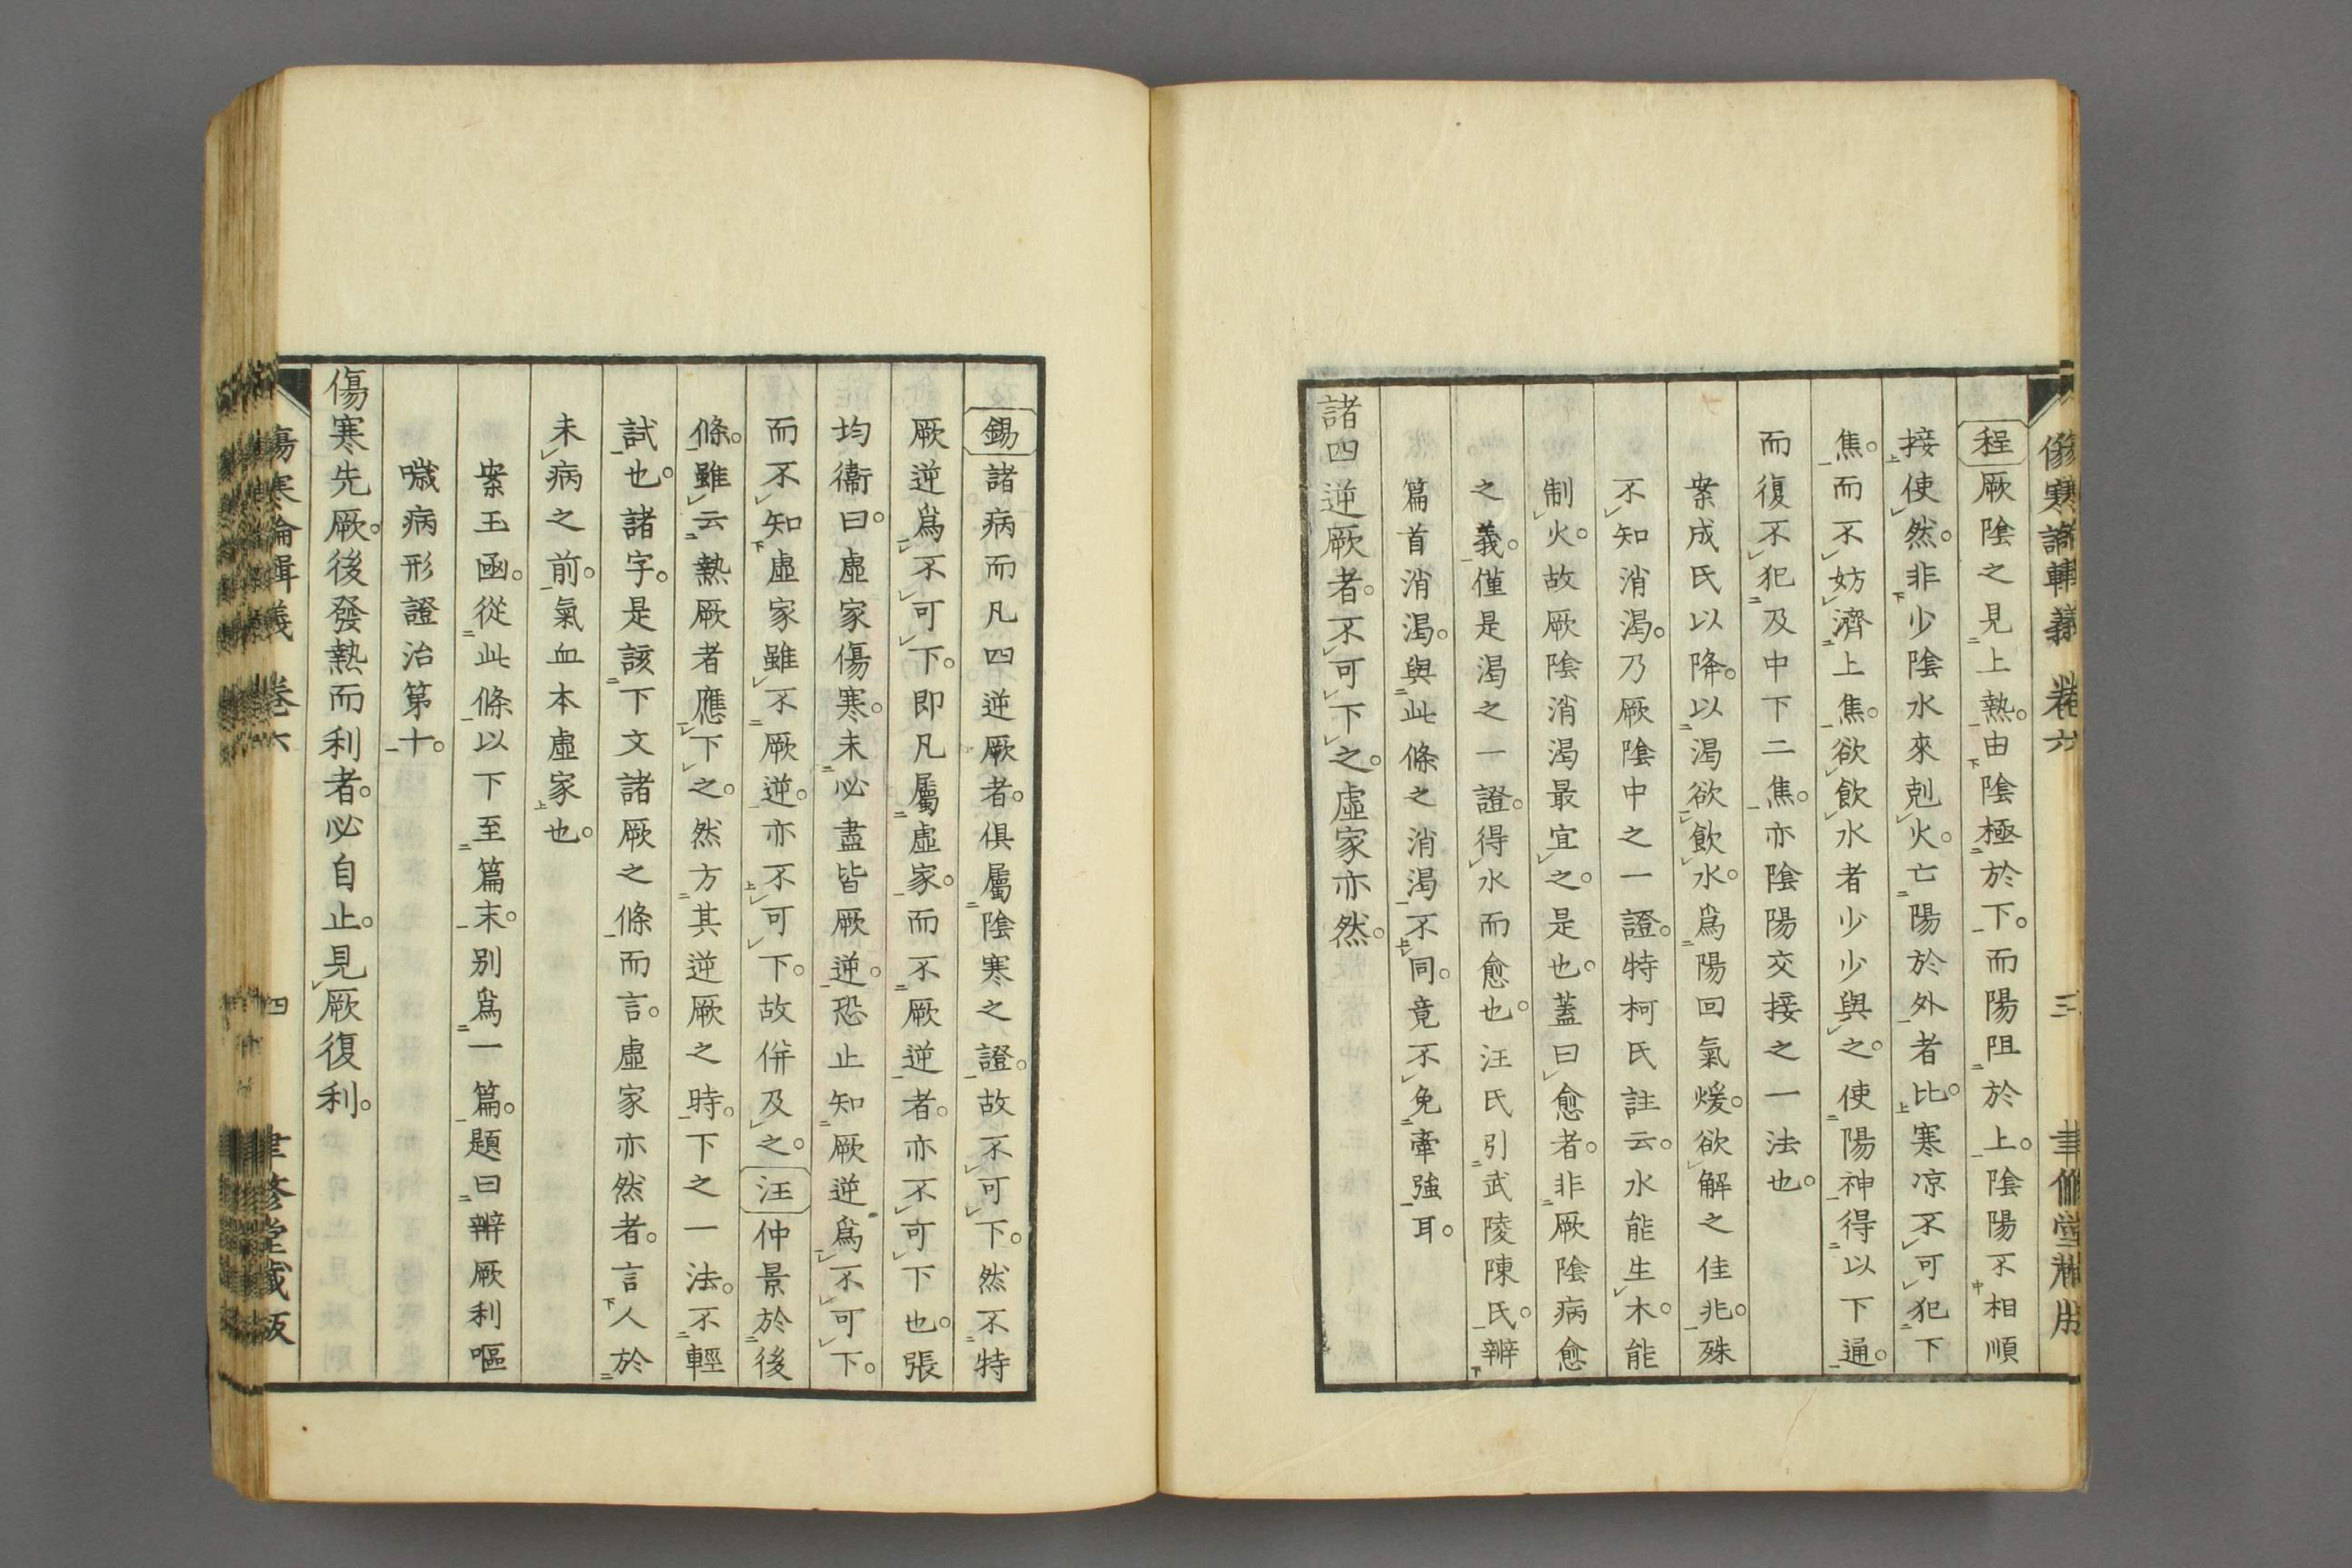 傷寒論輯義 卷六 三 聿修堂藏版
程厥陰之見上熱。由陰極於下。而陽阻於上。陰陽不相順
接使然。非少陰水來剋火。亡陽於外者比。寒凉不可犯下
焦。而不妨濟上焦。欲飲水者少少與之。使陽神得以下通。
而復不犯及中下二焦。亦陰陽交接之一法也。
案成氏以降。以渴欲飲水。爲陽回氣煖。欲解之佳兆。殊
不知消渴。乃厥陰中之一證。特柯氏註云。水能生木。能
制火。故厥陰消渴最宜之。是也。蓋曰愈者。非厥陰病愈
之義。僅是渴之一證。得水而愈也。汪氏引武陵陳氏。辨
篇首消渴。與此條之消渴不同。竟不免牽強耳。
諸四逆厥者。不可下之。虛家亦然。
錫諸病而凡四逆厥者。俱屬陰寒之證。故不可下。然不特
厥逆爲不可下。即凡屬虛家。而不厥逆者。亦不可下也。張
均衞曰。虛家傷寒。未必盡皆厥逆。恐止知厥逆爲不可下。
而不知虛家雖不厥逆。亦不可下。故併及之。汪仲景於後
條。雖云熱厥者應下之。然方其逆厥之時。下之一法。不輕
試也。諸字。是該下文諸厥之條而言。虛家亦然者。言人於
未病之前。氣血本虛家也。
案玉函。從此條以下至篇末。别爲一篇。題曰辨厥利嘔
噦病形證治第十。
傷寒先厥。後發熱而利者。必自止。見厥復利。
傷寒論輯義 卷六 四 聿修堂藏版